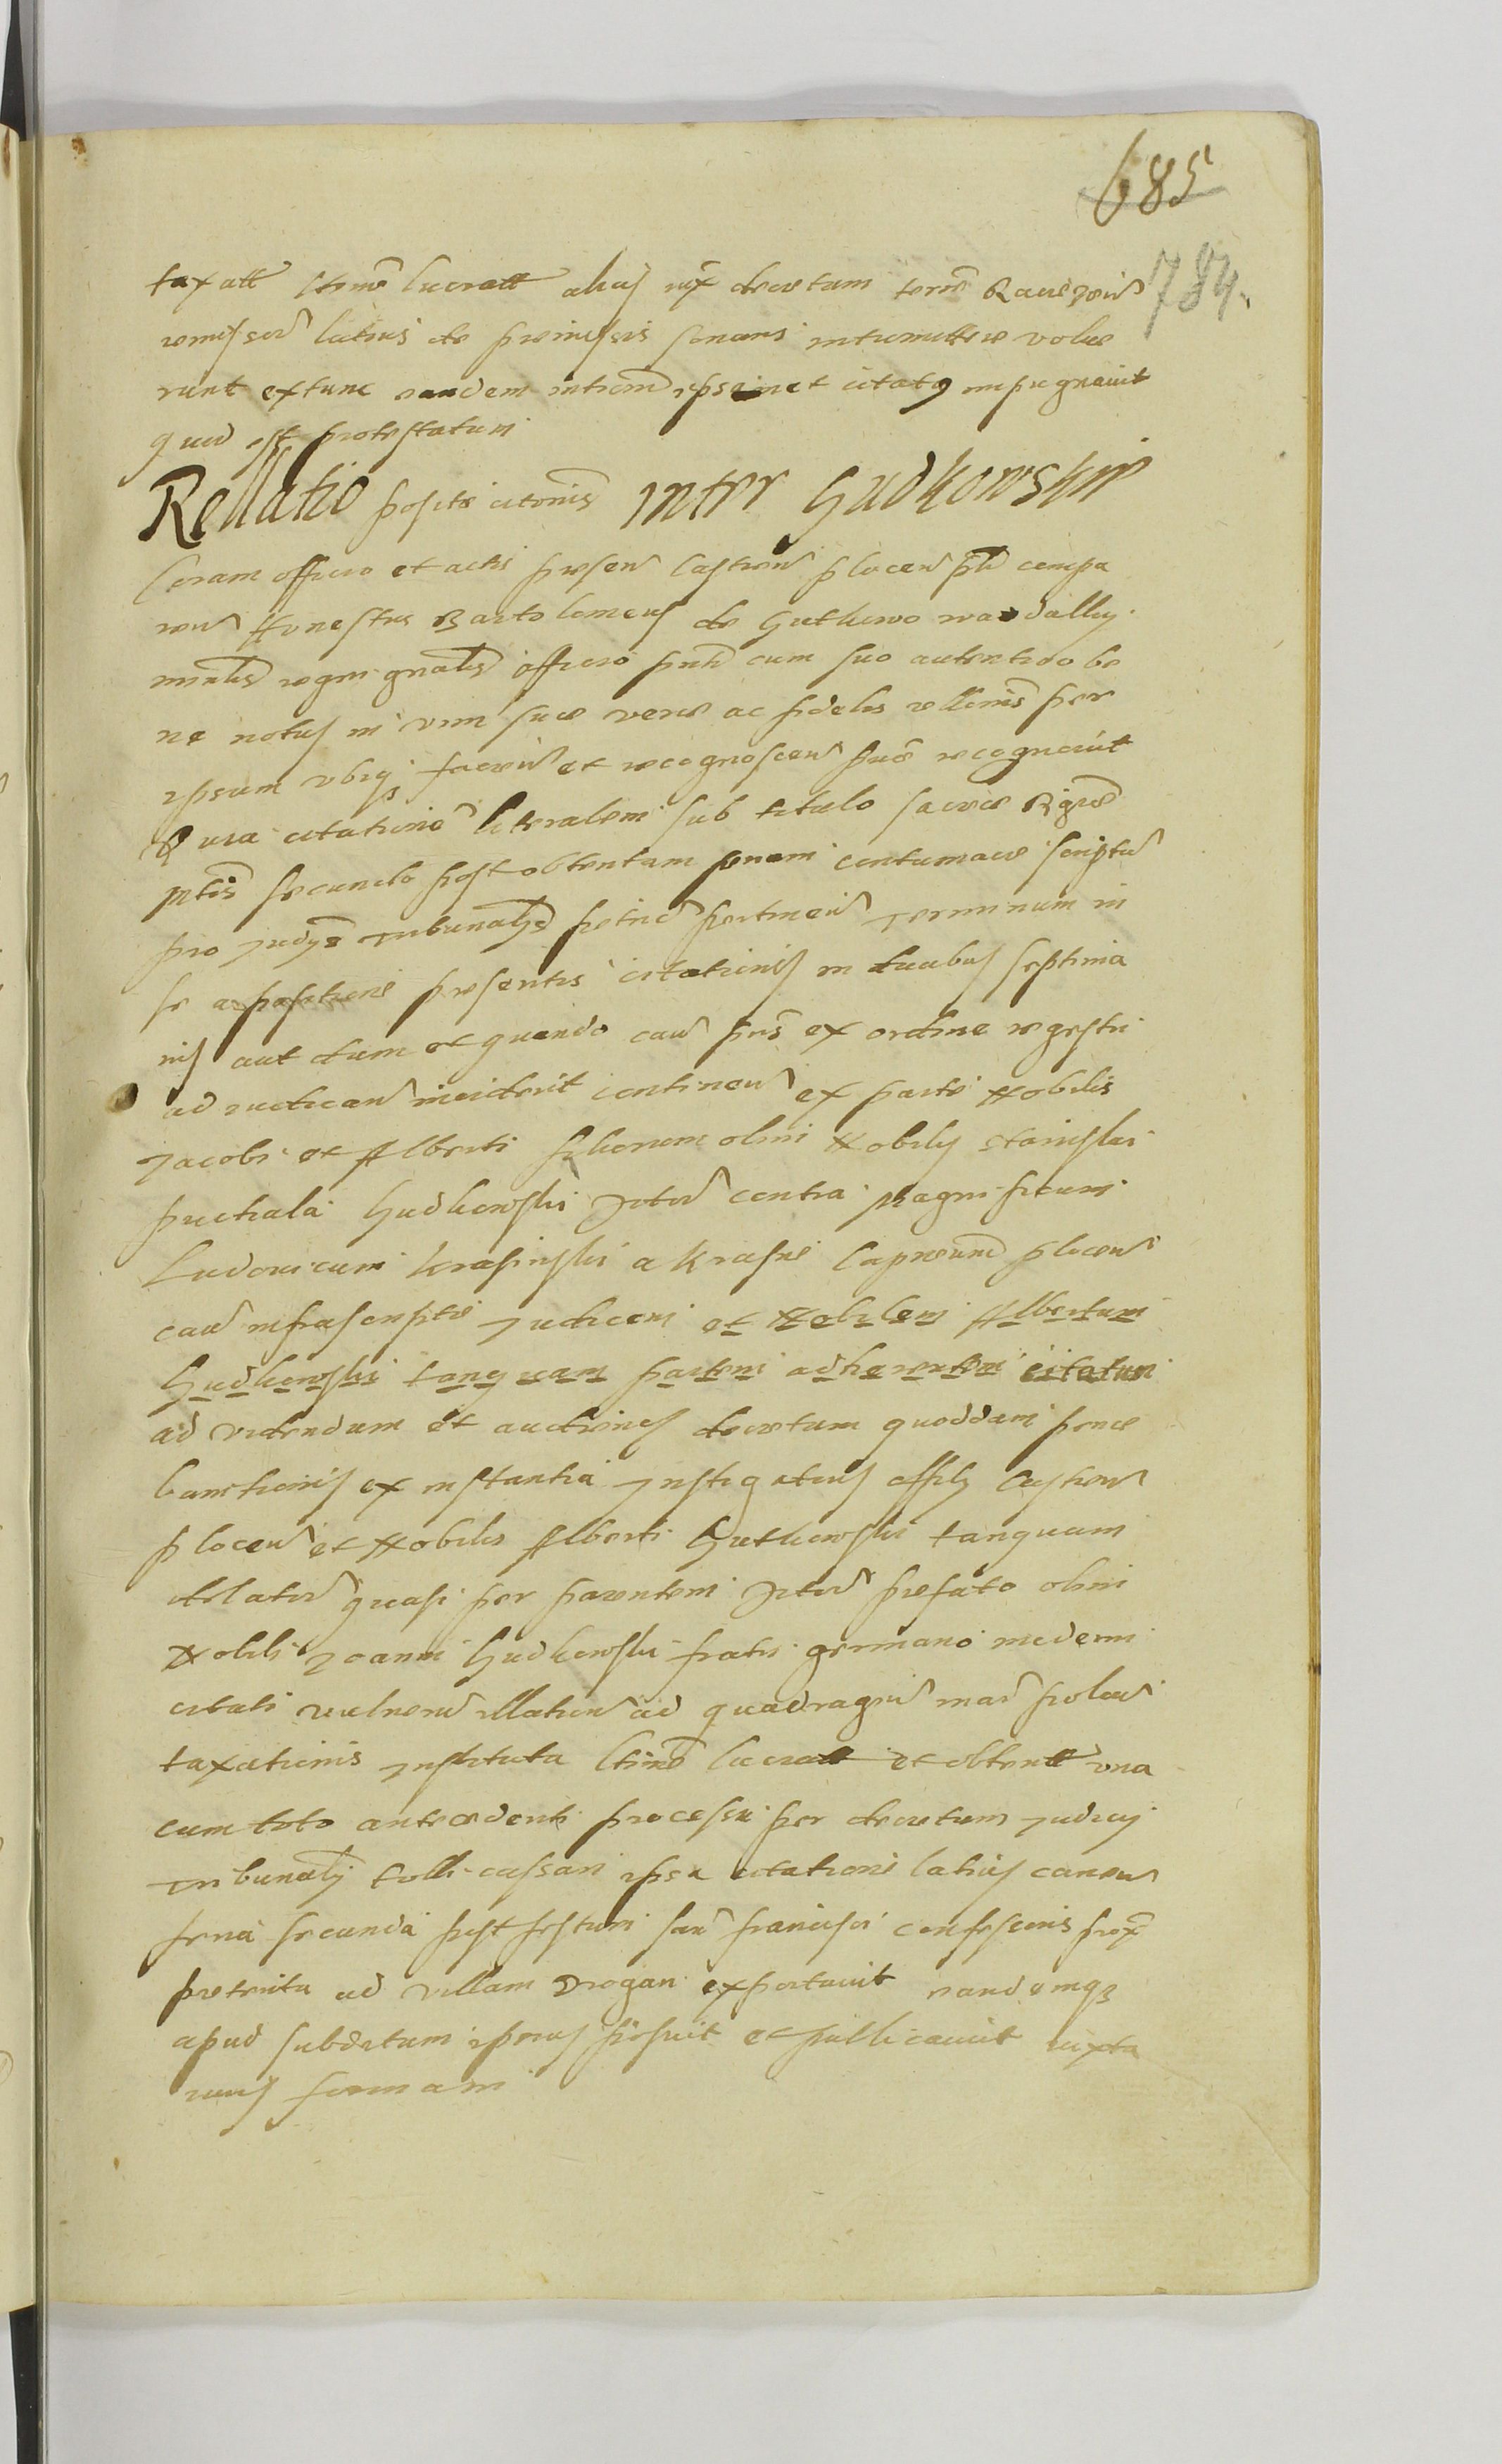 685
784.
taxatt ltime lucratt alias iux decretum terre Raue
remissor latius de premissis sonans intromittere volue
runt extunc eandem introm ipsemet citatq impugnauit
quid est protestatum
Rellatio posite citonis inter Gudkowskie
Coram officio et actis presen Castren plocen psli compa
ren Honestus Bartolomeus de Gutkowo
mialis regni gnalis officio pnti cum suo autentico be
ne notus in vim sue vere ac fidelis rellonis per
ipsum vbiqz facien et recognoscen sue recognouit
Quia citatione literalem sub titulo sacre Rigie
mtis secundo post obtentam penam contumacie scriptu
pro Judys Tribunalys petric pertinen Terminum in
se a positione presentis citationis in duabus septima
nis aut dum et quando cau pns ex ordine regestri
ad iudican inciderit continen ex parte Nobilis
Jacobi et Alberti filiorum olim Nobilis Stanislai
puchala Gudkowski Actor contra Magnificum
Ludouicum krasinski a Krasne Capneum plocen
cau infrascripte Judicem et Nobilem Albertum
Gudkowski tanquam partem adherentem citatum
ad videndum et decretum quoddam pene
bannitionis ex instantia Instigatoris offily Castren
plocen et Nobilis Alberti Gutkowski tanquam
delator quasi per parentem Actor prefato olim
Nobili Joanni Gudkowski fratri germano moderni
citati vulnerū illation ad quadragin mar polon
taxationis Instituta ltime lucratt et obtentt vna
cum toto antecedenti processu per decretum Judicy
Tribunaly tolli cassari ipsa citatione latius canen
feria secunda post festum san francisci confessoris prox
preterita ad villam Drogan exportauit eandemqz
apud subditum ipsius posuit et publicauit iuxta
iuris formam